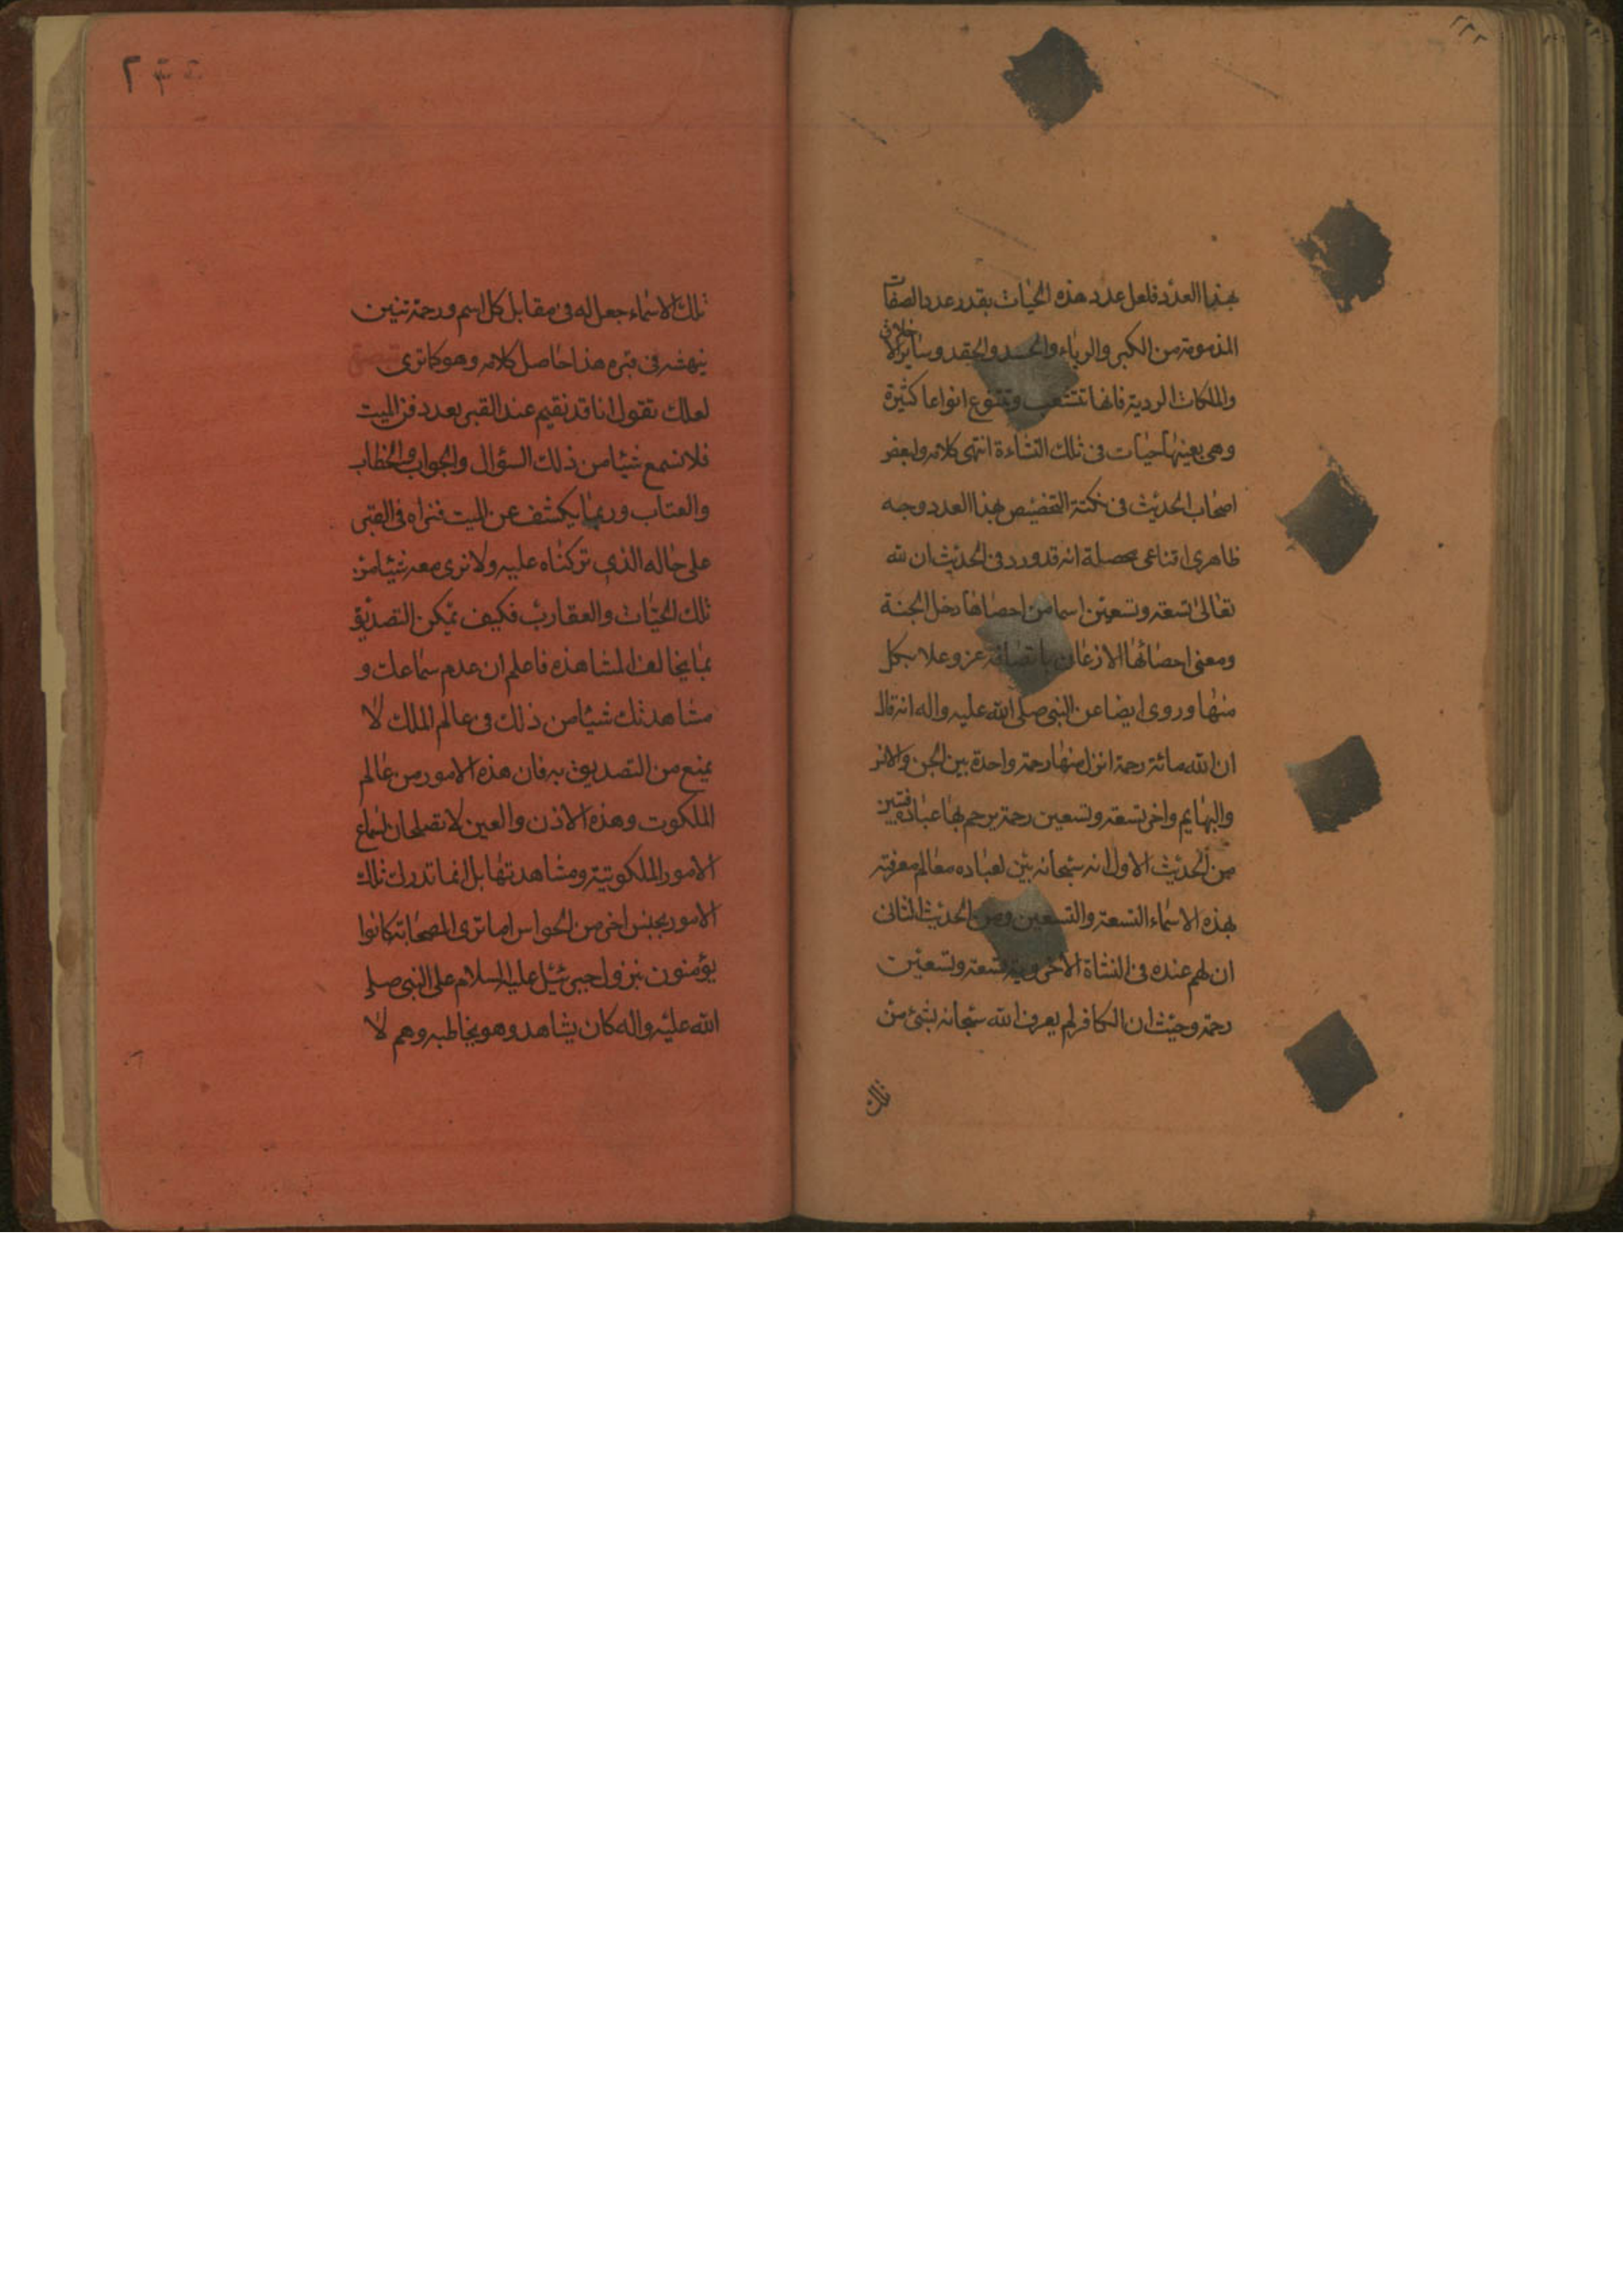 ٢٢٢
بهذا العدد فلعل عدد هذه الحيات بقدر عدد الصفات
المذمومة من الكبر والرياء والحسد والحقد وساير الاخلاق
والملكات الردية فانها تتشعب وتتنوع انواعا كثيرة
وهى بعينها حيات فى تلك النشاءة انتهى كلامه ولبعض
اصحاب الحديث فى نكتة التخصيص بهذا العدد وجه
ظاهرى اقناعى محصلة انه قد ورد فى الحديث ان لله
تعالى تسعة وتسعين اسما من احصاها دخل الجنة
ومعنى احصائها الاذعان باتصافه عز وعلا بكل
منها وروى ايضا عن النبى صلى الله عليه واله انه قال
ان لله مائة رحمة انزل منها رحمة واحدة بين الجن والانس
والبهايم واخر تسعة وتسعين رحمة يرحم بها عباده فتبين
من الحديث الاول انه سبحانه بين لعباده معالم معرفته
بهذه الاسماء التسعة والتسعين ومن الحديث الثانى
ان لهم عنده فى النشاة الاخروية تسعة وتسعين
رحمة وحيث ان الكافر لم يعرف الله سبحانه بشئ من
تلك
تلك الاسماء جعل له فى مقابل كل اسم ورحمة تنين
ينهشه فى قبره هذا حاصل كلامه وهو كما ترى
لعلك تقول انا قد نقيم عند القبر بعد دفن الميت
فلا نسمع شيئا من ذلك السؤال والجواب والخطاب
والعتاب وربما يكشف عن الميت فنراه فى القبر
على حاله الذى تركناه عليه ولا نرى معه شيئا من
تلك الحيات والعقارب فكيف يمكن التصديق
بما يخالف المشاهده فاعلم ان عدم سماعك و
مشاهدتك شيئا من ذلك فى عالم الملك لا
يمنع من التصديق به فان هذه الامور من عالم
الملكوت وهذه الاذن والعين لا تصلحان لسماع
الامور الملكوتية ومشاهدتها بل انما تدرك تلك
الامور بجنس اخر من الحواس اما ترى الصحابة كانوا
يؤمنون بنزول جبرئيل عليه السلام على النبى صلى
الله عليه واله كان يشاهد وهو يخاطبه وهم لا